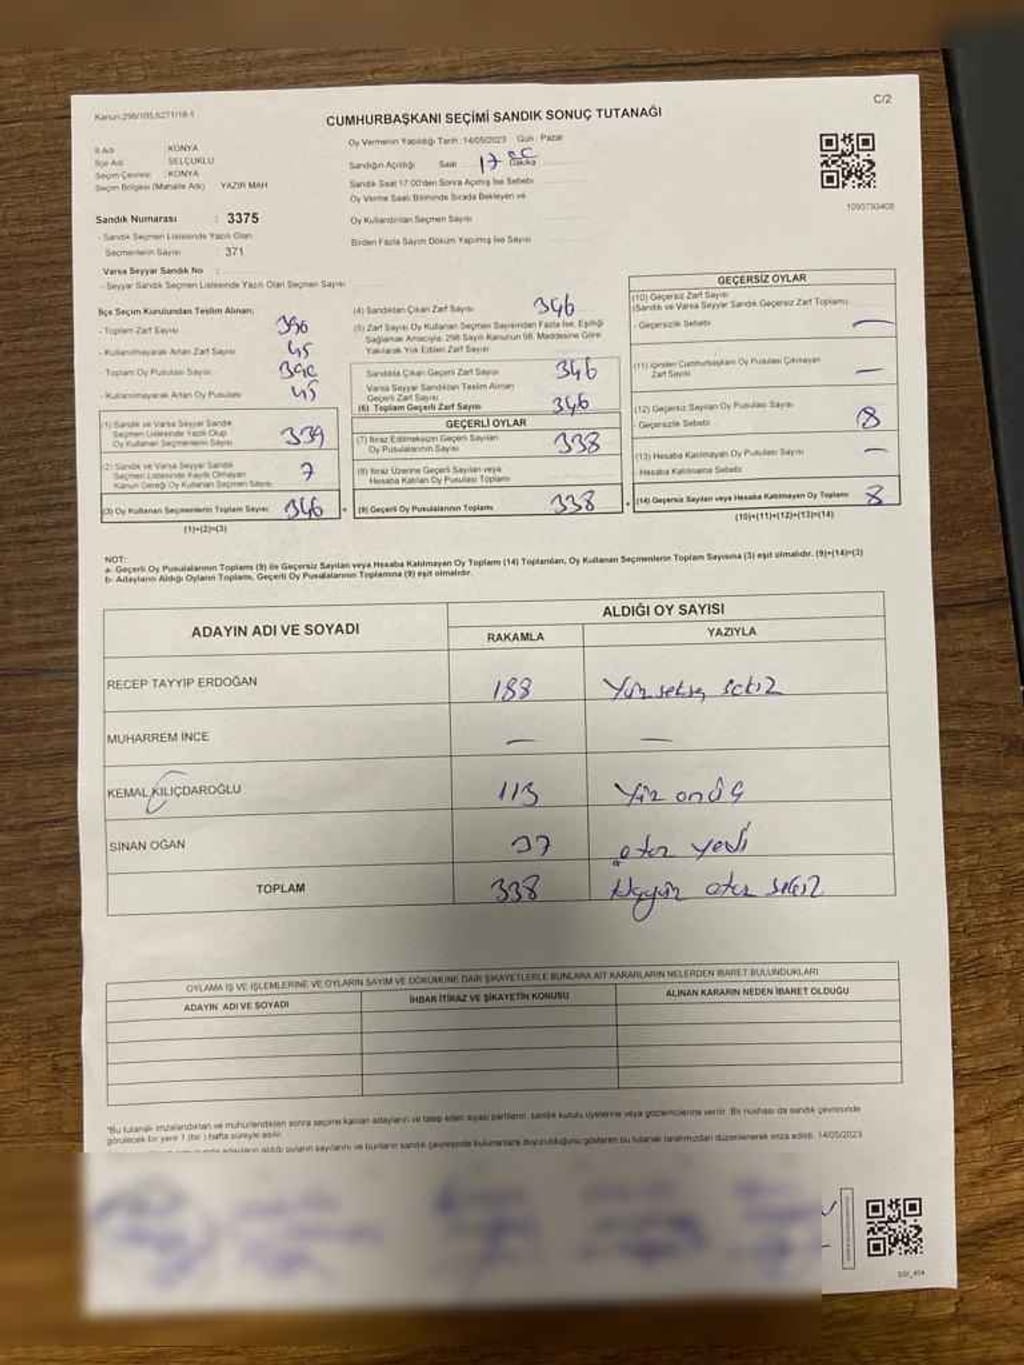 Kanun:298/105,6271/18-1
C/2
CUMHURBAŞKANI SEÇİMİ SANDIK SONUÇ TUTANAĞI
İl Adı : KONYA
İlçe Adı : SELÇUKLU
Seçim Çevresi : KONYA
Seçim Bölgesi (Mahalle Adı) YAZIR MAH
Sandık Numarası : 3375
- Sandık Seçmen Listesinde Yazılı Olan
Seçmenlerin Sayısı 371
Varsa Seyyar Sandık No :
- Seyyar Sandık Seçmen Listesinde Yazılı Olan Seçmen Sayısı
Oy Vermenin Yapıldığı Tarih :14/05/2023 Gün : Pazar
Sandığın Açıldığı Saat 17 Dakika
Sandık Saat 17:00'den Sonra Açılmış İse Sebebi
Oy Verme Saati Bitiminde Sırada Bekleyen ve
Oy Kullandırılan Seçmen Sayısı
Birden Fazla Sayım Döküm Yapılmış İse Sayısı
İlçe Seçim Kurulundan Teslim Alınan;
- Toplam Zarf Sayısı
- Kullanılmayarak Artan Zarf Sayısı 45
- Toplam Oy Pusulası Sayısı
- Kullanılmayarak Artan Oy Pusulası 45
(1) Sandık ve Varsa Seyyar Sandık
Seçmen Listesinde Yazılı Olup
Oy Kullanan Seçmenlerin Sayısı 339
(2) Sandık ve Varsa Seyyar Sandık
Seçmen Listesinde Kayıtlı Olmayan
Kanun Gereği Oy Kullanan Seçmen Sayısı 7
(3) Oy Kullanan Seçmenlerin Toplam Sayısı 346
(1)+(2)=(3)
(4) Sandıktan Çıkan Zarf Sayısı 346
(5) Zarf Sayısı Oy Kullanan Seçmen Sayısından Fazla İse, Eşitliği
Sağlamak Amacıyla; 298 Sayılı Kanunun 98. Maddesine Göre
Yakılarak Yok Edilen Zarf Sayısı
Sandıkta Çıkan Geçerli Zarf Sayısı 346
Varsa Seyyar Sandıktan Teslim Alınan
Geçerli Zarf Sayısı
(6) Toplam Geçerli Zarf Sayısı 346
GEÇERLİ OYLAR
(7) İtiraz Edilmeksizin Geçerli Sayılan
Oy Pusulalarının Sayısı 338
(8) İtiraz Üzerine Geçerli Sayılan veya
Hesaba Katılan Oy Pusulası Toplamı
(9) Geçerli Oy Pusulalarının Toplamı 338
GEÇERSİZ OYLAR
(10) Geçersiz Zarf Sayısı
(Sandık ve Varsa Seyyar Sandık Geçersiz Zarf Toplamı)
- Geçersizlik Sebebi —
(11) İçinden Cumhurbaşkanı Oy Pusulası Çıkmayan
Zarf Sayısı —
(12) Geçersiz Sayılan Oy Pusulası Sayısı
- Geçersizlik Sebebi 8
(13) Hesaba Katılmayan Oy Pusulası Sayısı —
Hesaba Katılmama Sebebi
(14) Geçersiz Sayılan veya Hesaba Katılmayan Oy Toplamı 8
(10)+(11)+(12)+(13)=(14)
NOT:
a- Geçerli Oy Pusulalarının Toplamı (9) ile Geçersiz Sayılan veya Hesaba Katılmayan Oy Toplamı (14) Toplamları, Oy Kullanan Seçmenlerin Toplam Sayısına (3) eşit olmalıdır. (9)+(14)=(3)
b- Adayların Aldığı Oyların Toplamı, Geçerli Oy Pusulalarının Toplamına (9) eşit olmalıdır.
ADAYIN ADI VE SOYADI
ALDIĞI OY SAYISI
RAKAMLA YAZIYLA
RECEP TAYYİP ERDOĞAN 188 Yüz seksen sekiz
MUHARREM İNCE — —
KEMAL KILIÇDAROĞLU 113 Yüz onüç
SİNAN OĞAN 37 otuz yedi
TOPLAM 338 üçyüz otuz sekiz
OYLAMA İŞ VE İŞLEMLERİNE VE OYLARIN SAYIM VE DÖKÜMÜNE DAİR ŞİKAYETLERLE BUNLARA AİT KARARLARIN NELERDEN İBARET BULUNDUKLARI
ADAYIN ADI VE SOYADI
İHBAR İTİRAZ VE ŞİKAYETİN KONUSU
ALINAN KARARIN NEDEN İBARET OLDUĞU
"Bu tutanak imzalandıktan ve mühürlendikten sonra seçime katılan adayların ve talep eden siyasi partilerin, sandık kurulu üyelerine veya gözlemcilerine verilir. Bir nüshası da sandık çevresinde
görülecek bir yere 1 (bir) hafta süreyle asılır.